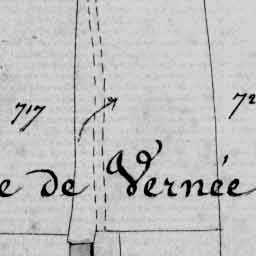 717
72
e de Vernée